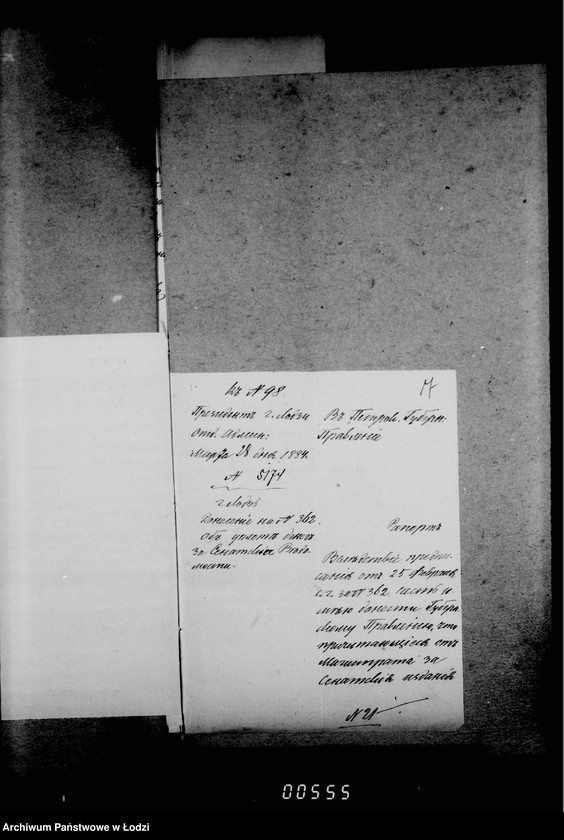 Къ № 98.
17
Президентъ г. Лодзи
Отд. Админ:
Марта 28 дня 1894.
№ 5174
г. Лодзь
Донесеніе на № 362.
объ уплатѣ денегъ
за Сенатскія Вѣдо
мости.
Въ Петроков. Губерн:
Правленіе
Рапортъ
Вслѣдствіе предпи
санія отъ 25 Февраля
с. г. за № 362 честь и
мѣю донести Губерн
скому Правленію, что
причитающіяся отъ
Магистрата за
Сенатскія изданія
№ 21
00555
Archiwum Państwowe w Łodzi